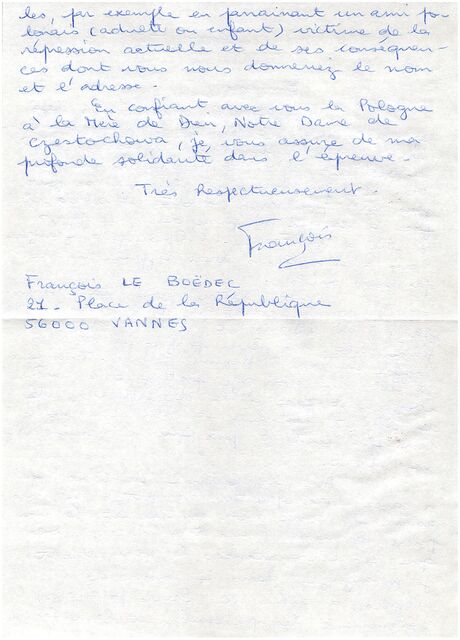 les, par exemple en parrainant un ami po-
lonais (adulte ou enfant) victime de la
répression actuelle et de ses conséquen-
ces dont vous nous donneriez le nom
et l'adresse.
En confiant avec vous la Pologne
à la Mère de Dieu, Notre Dame de
Czestochowa, je vous assure de ma
profonde solidarité dans l'épreuve.
Très Respectueusement.
François
François LE BOËDEC
27. Place de la République
56000 VANNES